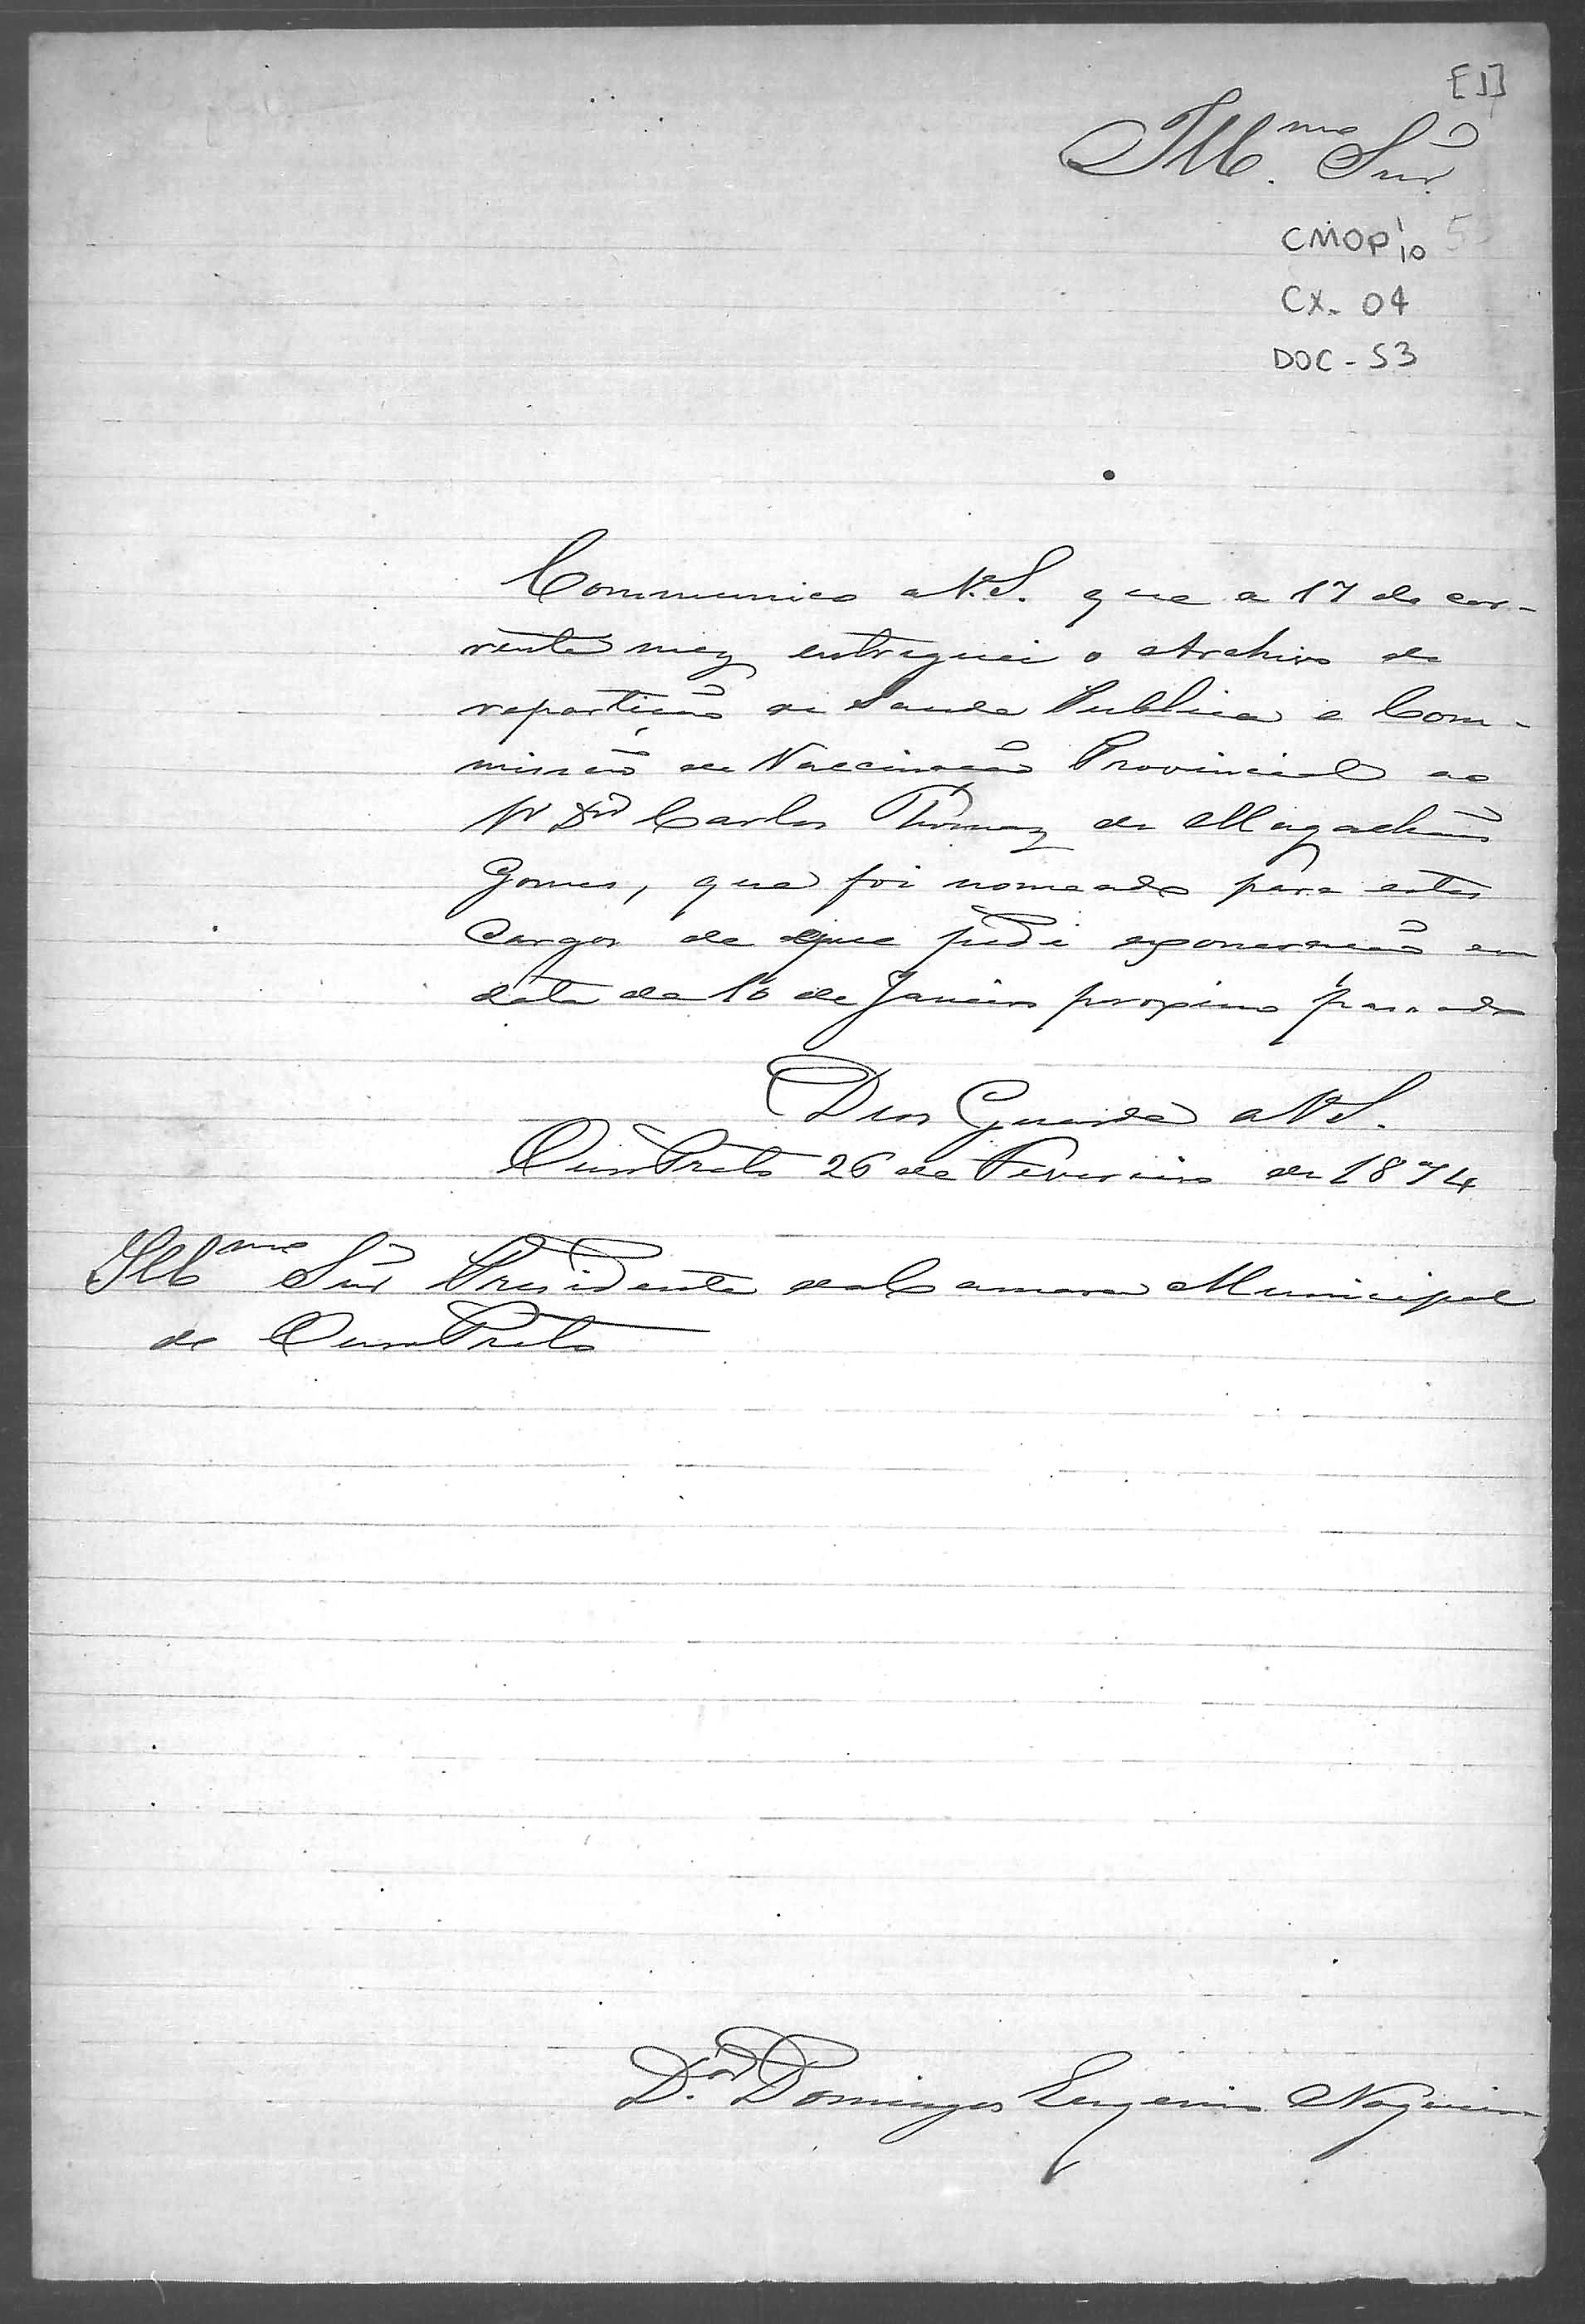 [1]
Ill.mo Snr.
CMOP 1/10
CX. 04
DOC - 53
Communico a V.S. que a 17 do cor-
rente mez entreguei o Archivo da
repartição de Saude Publica e Com-
missão de Vaccinação Provincial ao
Sr Dor Carlos Thomaz de Magalhães
Gomes, que foi nomeado para estes
Cargos de que pedi exoneração em
data de 16 de Janeiro proximo passado
Deos Guarde a V.S.
Ouro Preto 26 de Fevereiro de 1874
Illmo Snr Presidente da Camara Municipal
de Ouro Preto
D.or Domingos Eugenio Nogueira